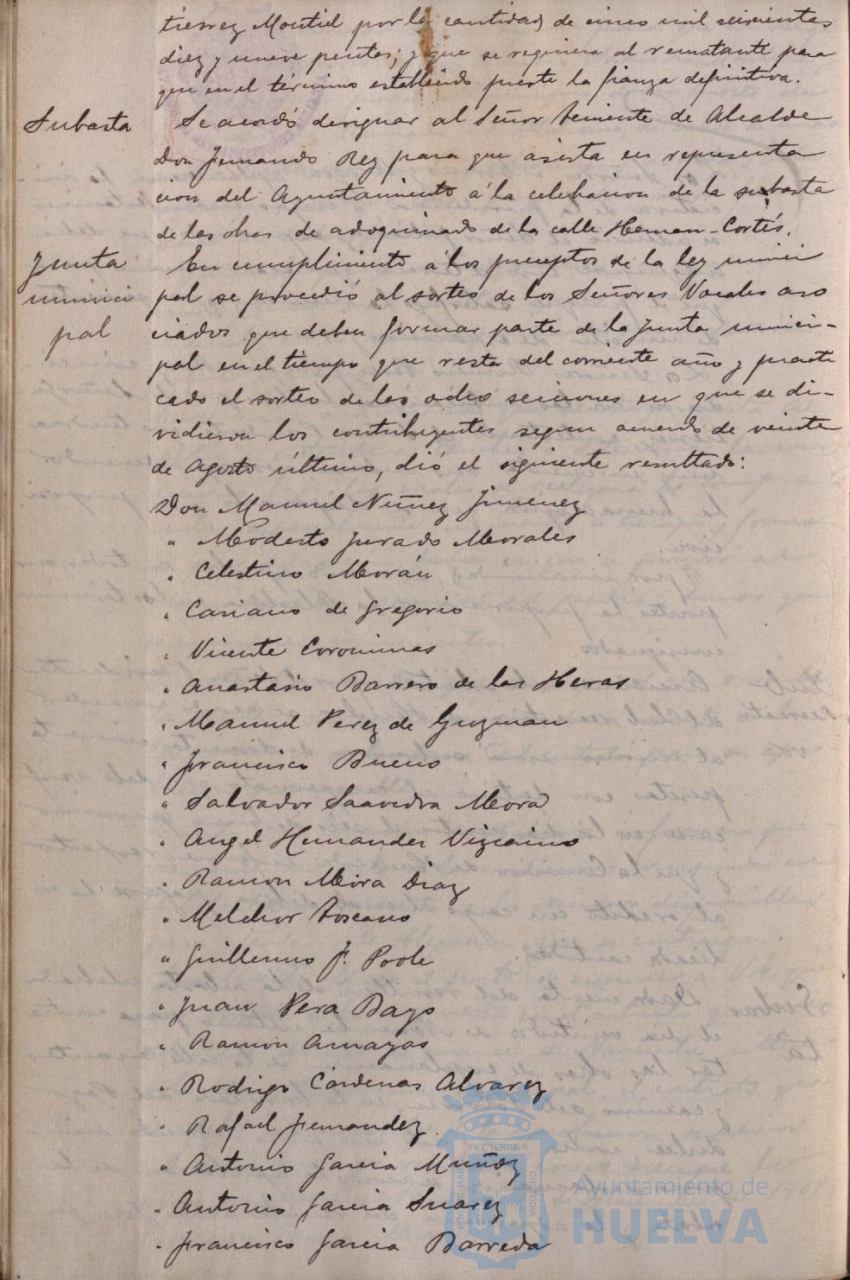 tierrez Montiel por la cantidad de cinco mil seiscientas
diez y nueve pesetas, y que se requiera al rematante para
que en el término establecido preste la fianza definitiva.
Subasta
Se acordó designar al Señor Teniente de Alcalde
Don Fernando Rey para que asista en representa
cion del Ayuntamiento á la celebracion de la subasta
de las obras de adoquinado de la calle Hernan-Cortés.
Junta
munici
pal
En cumplimiento á los preceptos de la ley munici
pal se procedió al sorteo de los Señores Vocales aso
ciados que deben formar parte de la Junta munici-
pal en el tiempo que resta del corriente año y practi
cado el sorteo de las ocho secciones en que se di-
vidieron los contribuyentes segun acuerdo de veinte
de Agosto último, dió el siguiente resultado:
Don Manuel Nuñez Jimenez
" Modesto Jurado Morales
" Celestino Morán
" Casiano de Gregorio
" Vicente Corominas
" Anastasio Barrero de las Heras
" Manuel Perez de Guzman
" Francisco Bueno
" Salvador Saavedra Mora
" Angel Hernandez Vizcaino
" Ramon Mora Diaz
" Melchor Toscano
" Guillermo J. Poole
" Juan Vera Bayo
" Ramon Amayas
" Rodrigo Cárdenas Alvarez
" Rafael Fernandez
" Antonio Garcia Muñoz
" Antonio Garcia Suarez
" Francisco Garcia Barreda
Ayuntamiento de
HUELVA